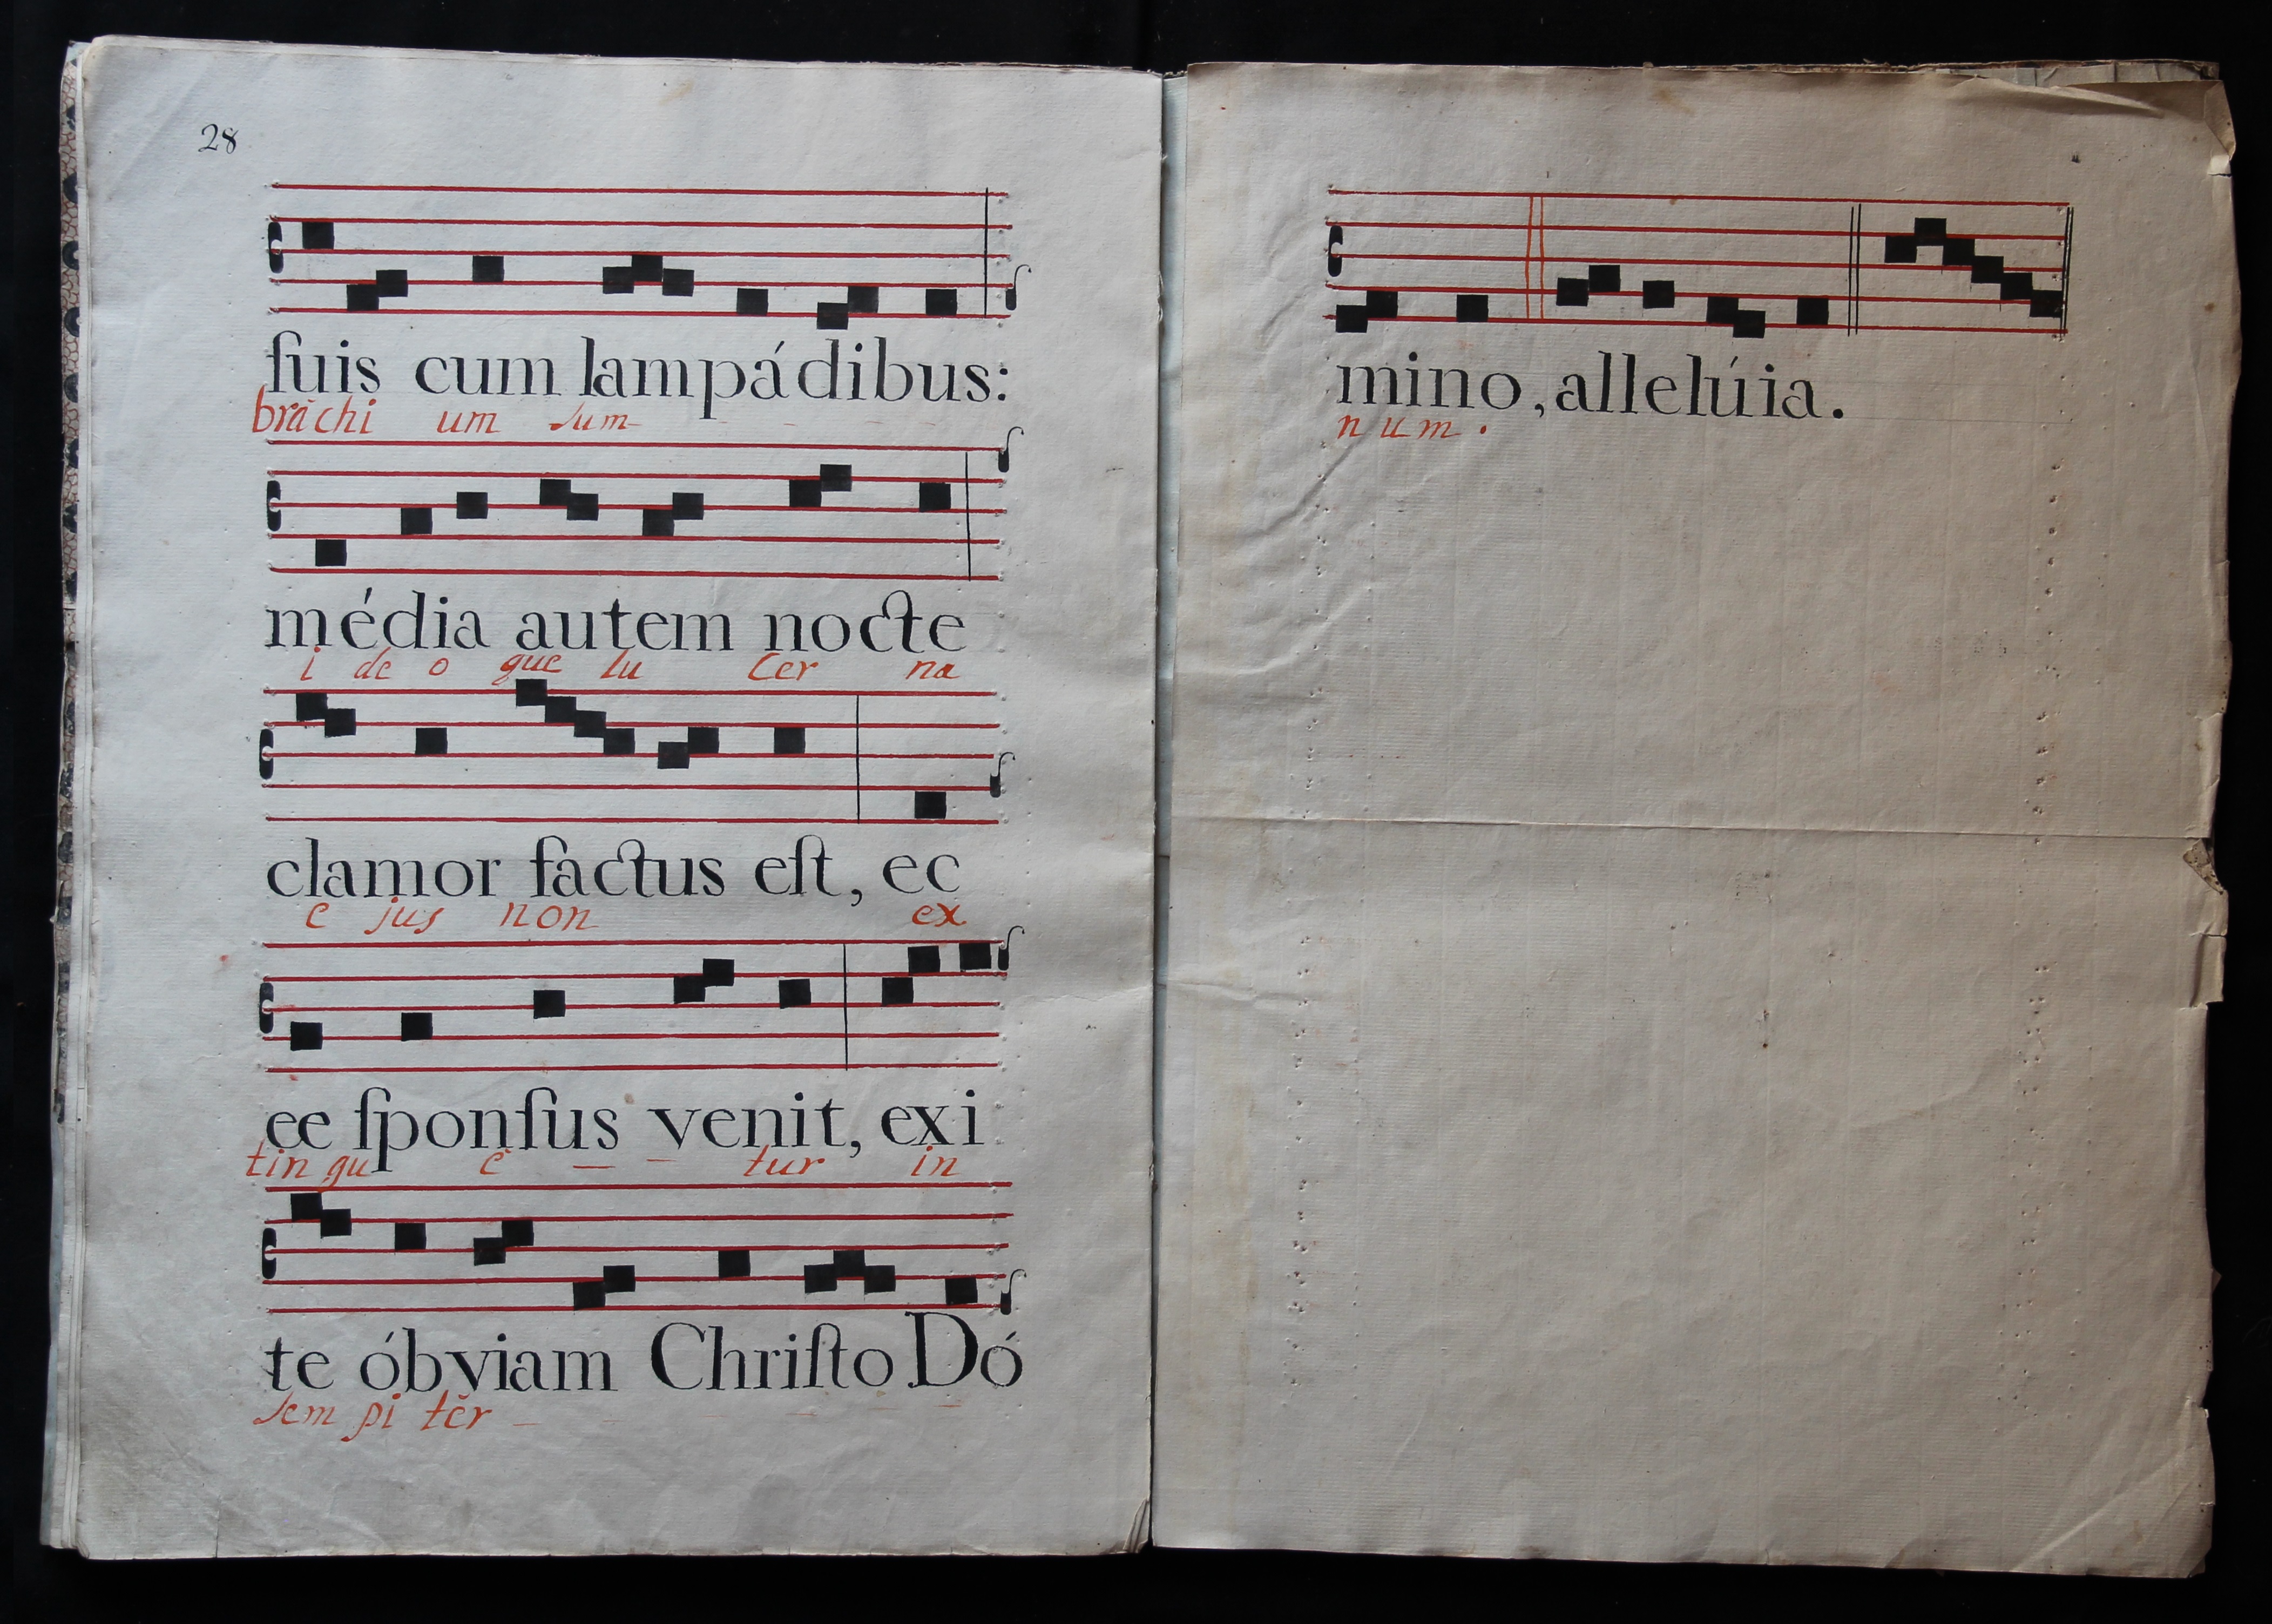 28
ſuis cum lampádibus:
brăchi um sum
média autem nocte
i de o que lu cer na
clamor factus eſt, ec
e jus non ex
ee ſponſus venit, exi
tin gu ĕ tur in
te óbviam Chriſto Dó
sem pi tĕr
mino, allelúia.
num.